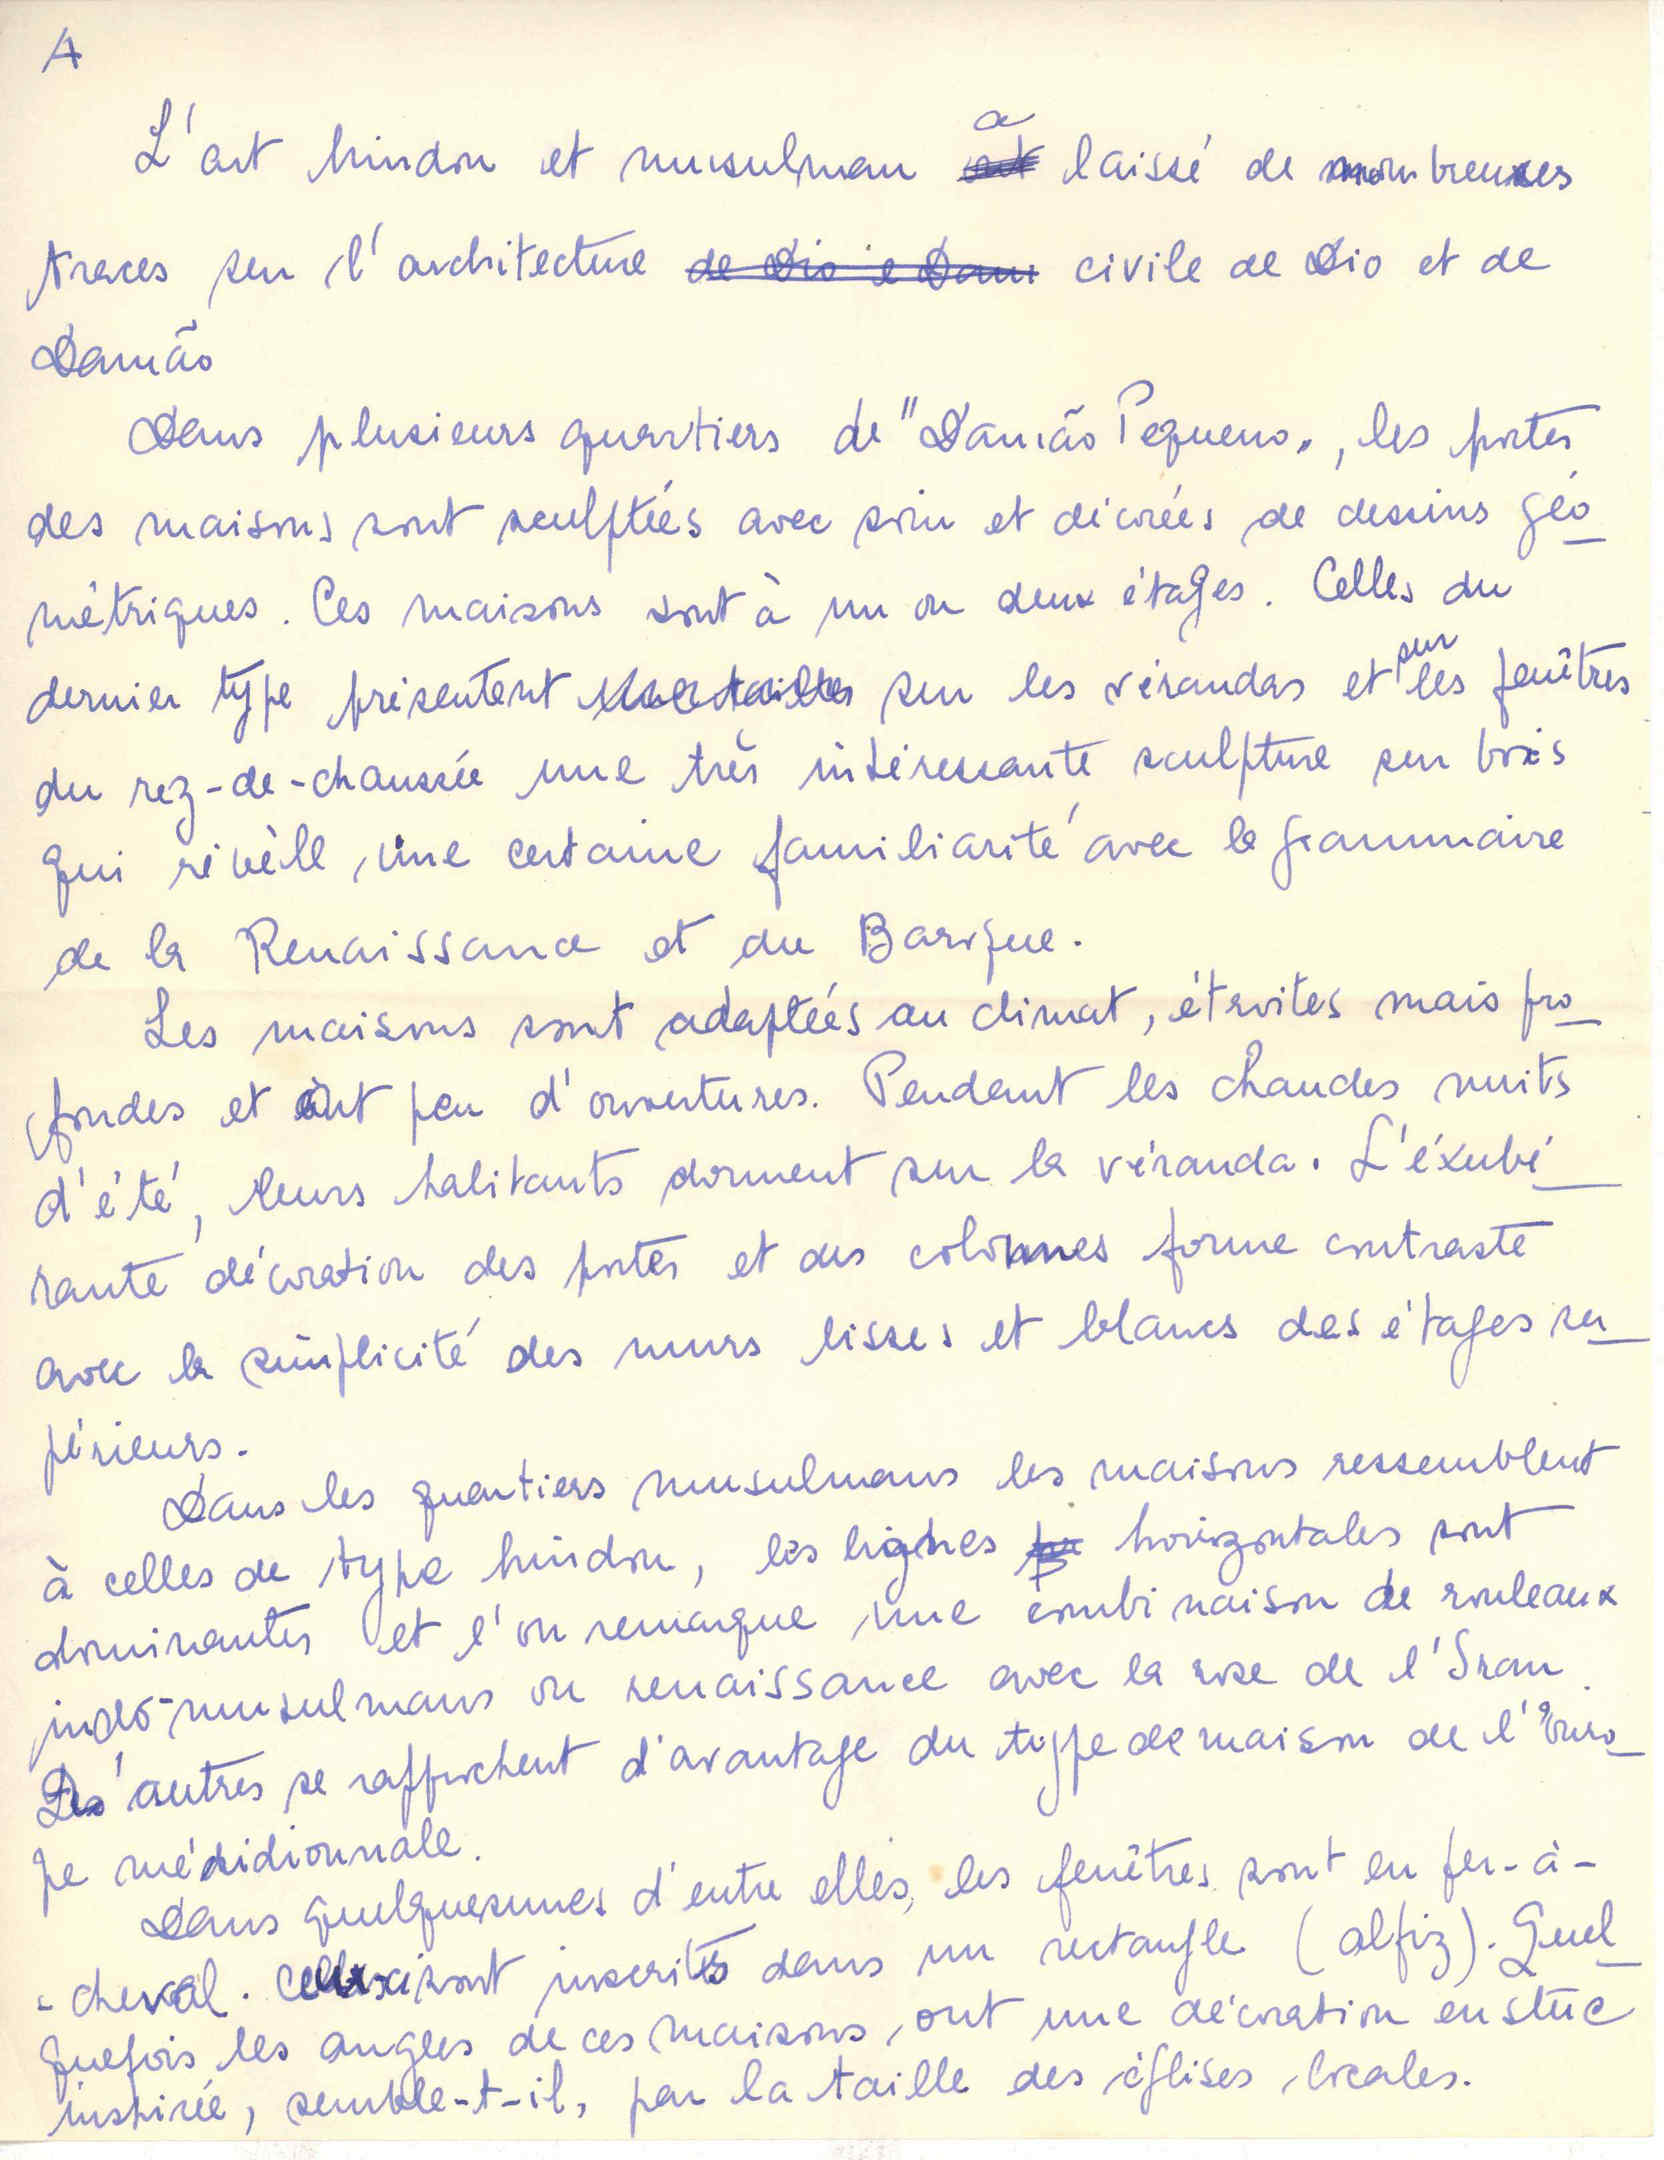 A
L'art hindou et musulman a laissé de nombreuses
traces sur l'architecture de Dio e Dami civile de Dio et de
Damão
Dans plusieurs quartiers de "Damão Pequeno", les portes
des maisons sont sculptées avec soin et décorées de dessins géo
métriques. Ces maisons sont à un ou deux étages. Celles du
dernier type présentent sur les vérandas et sur les fenêtres
du rez-de-chaussée une très intéressante sculpture sur bois
qui révèle une certaine familiarité avec la grammaire
de la Renaissance et du Baroque.
Les maisons sont adaptées au climat, étroites mais pro
fondes et ont peu d'ouvertures. Pendant les chaudes nuits
d'été, leurs habitants dorment sur la véranda. L'éxubé
rante décoration des portes et des colonnes forme contraste
avec la simplicité des murs lisses et blancs des étages su
périeurs.
Dans les quartiers musulmans les maisons ressemblent
à celles de type hindou, les lignes horizontales sont
dominantes et l'on remarque une combinaison de rouleaux
indo-musulmans ou renaissance avec la rose de l'Iran.
D'autres se rapprochent d'avantage du type de maison de l'Euro
pe méridionnale.
Dans quelquesunes d'entre elles, les fenêtres sont en fer-à-
-cheval. Celles-ci sont inscrites dans un rectangle (alfiz). Quel
quefois les angles de ces maisons, ont une décoration en stuc
inspirée, semble-t-il, par la taille des églises locales.